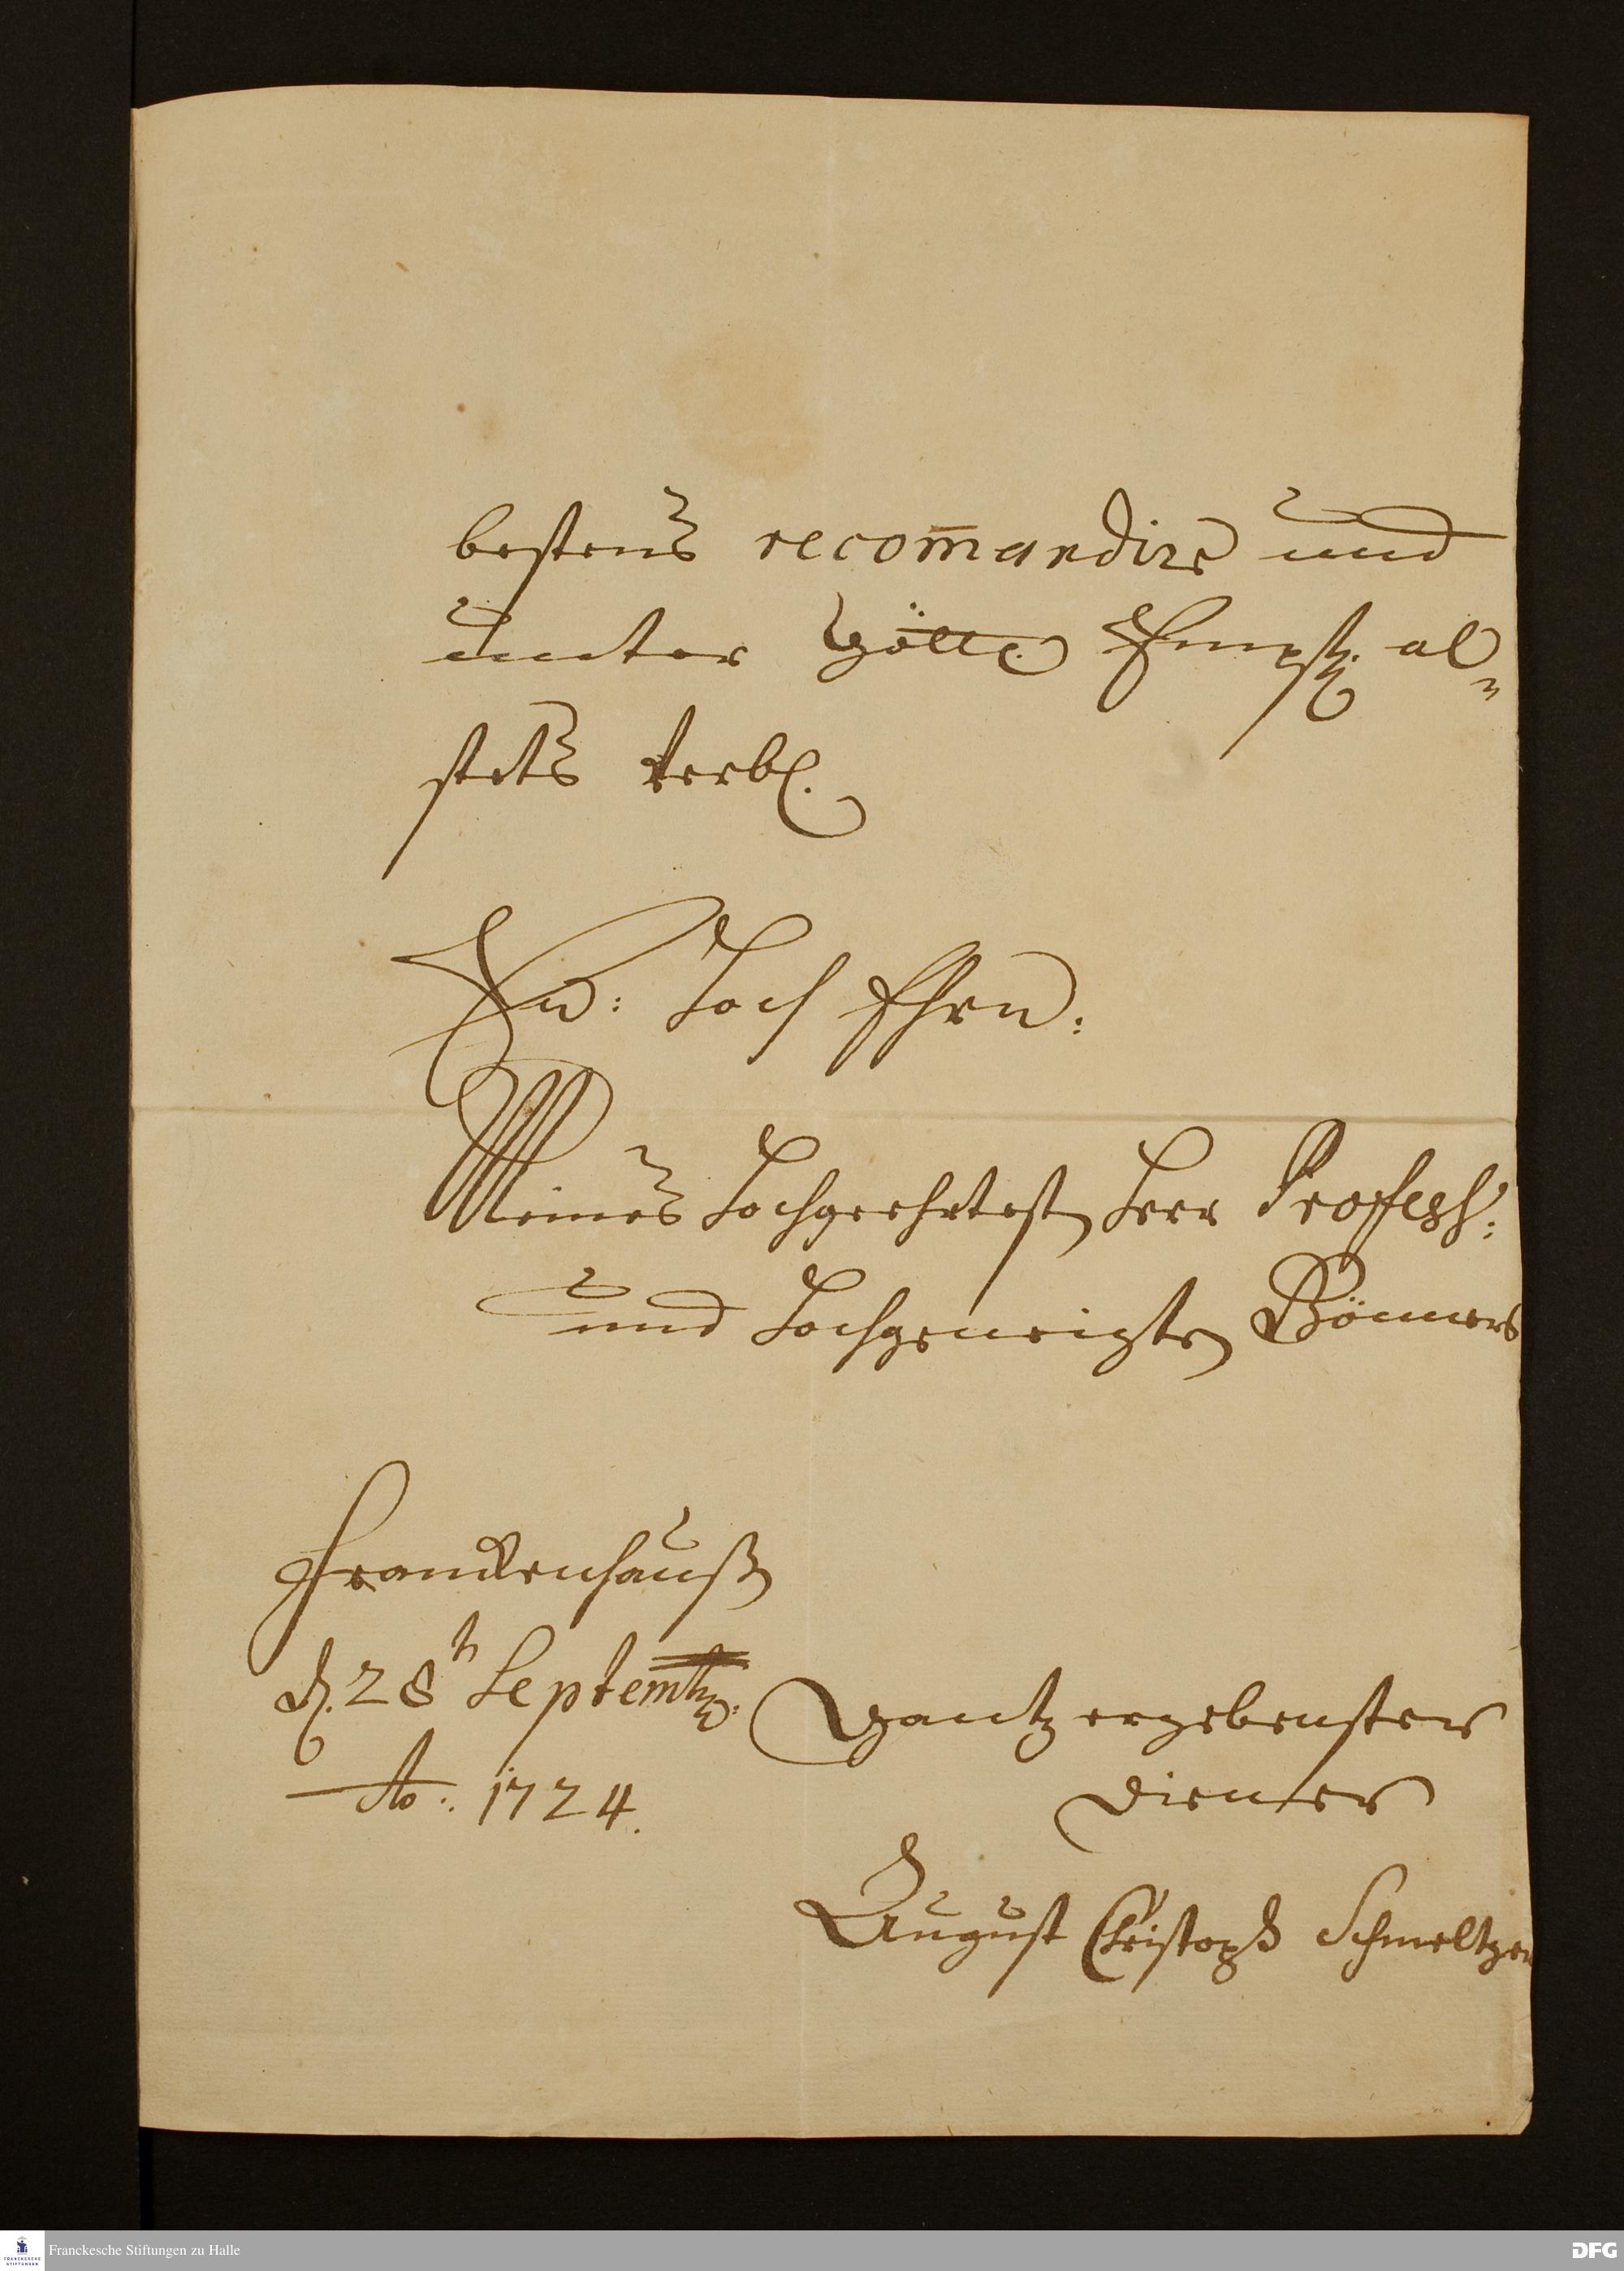 bestens recom̄andire und
unter Göttl. Empfh. al-
stets verbl.
Ew: Hoch Ehrw:
Meines Hochgeehrtest Herr Profess:
und Hochgeneigten Gönners
Franckenhauß
d. 28t Septembr.
Ao: 1724.
Gantz ergebenster
Diener
August Christoph Schmeltzer
Franckesche Stiftungen zu Halle
FRANCKESCHE
STIFTUNGEN
DFG